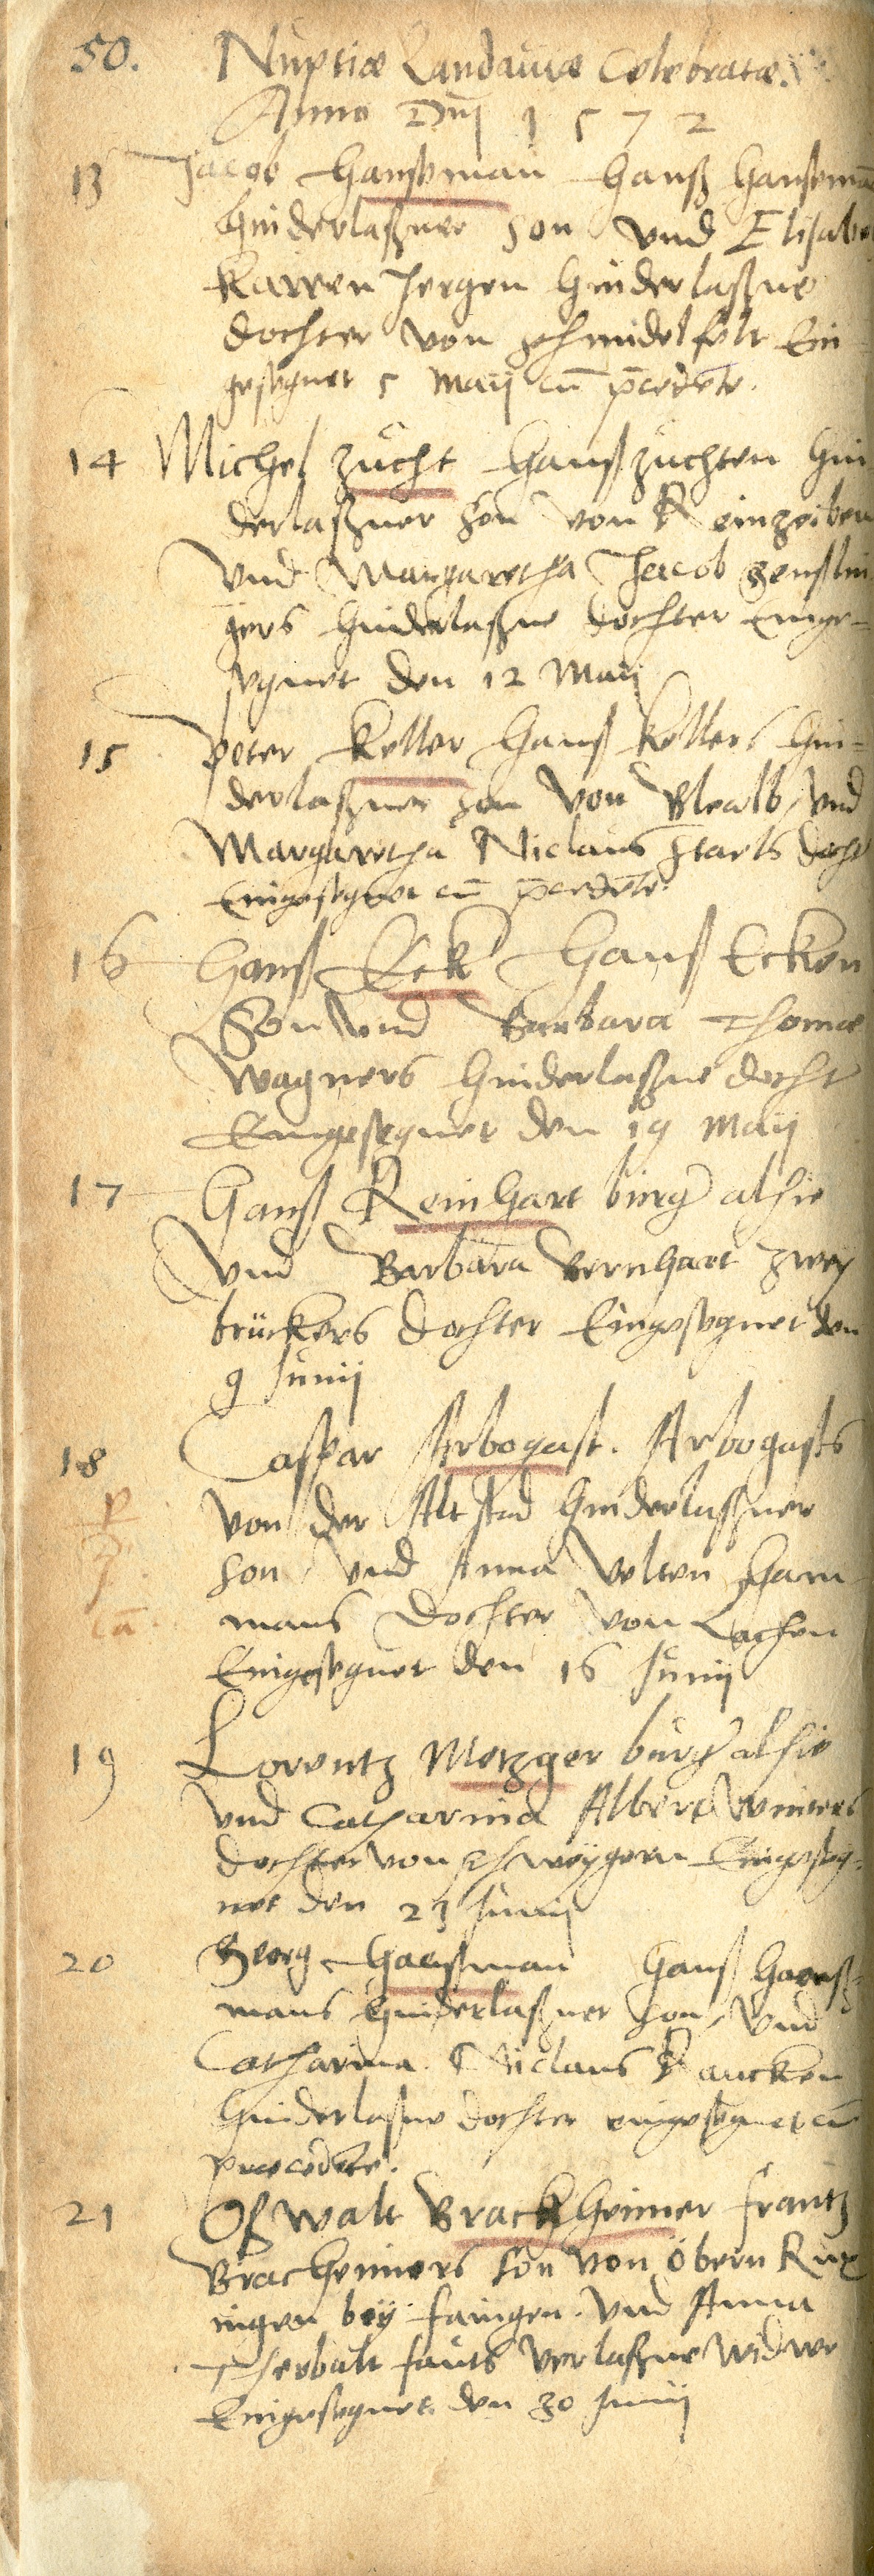 50. Nuptiæ Landaviæ Celebratæ.
Anno Dnj 1572
13 Jacob Hanseman Hanß Hansemã
hinderlaßner son vnd Elisabe
Karren Jergen hinderlaßne
dochter von schmidelfelt Ein=
gesegnet 5 Maij cū p̄cedēte.
14 Michel zücht Hanß züchten hin
derlaßner son von Reinzeibern
vnd Margaretha Jacob
gers hinderlaßne dochter Einge=
segnet den 12 Maij
15 Peter Keller Hanß Kellers hin=
derlaßner son von Blealb, vnd
Margaretha Niclaus Starls docht
Eingesegnet cū p̄cedēte.
16 Hanß Eck Hanß Ecken
Son vnd Barbara Thomæ
Wagners hinderlaßne docht
Eingesegnet den 19 Maij
17 Hanß Reinhart burg alhie
vnd Barbara Bernhart zwey
brückers dochter Eingesegnet den
9 Junij
18 Caspar Arbogast. Arbogasts
von der Altstad hinderlaßner
son, vnd Anna Velten Ham
mans dochter von Lachen
Eingesegnet den 16 Junij
19 Lorentz Metzger burg alhie
vnd Catharina Albert winters
dochter von schweygern Eingeseg=
net den 23 Junij
20 Georg Haeußman Hanß Haeuß=
mans hinderlaßner son, vnd
Catharina Niclaus Raucken
hinderlaßne dochter eingesegnet cū
præcedēte.
21 Oßwalt Brackheimer frantz
Bracheimers son von Obern Rux
ingen bey faingen. vnd Anna
Therbalt fauts verlaßne widwe
Eingesegnet den 30 Junij